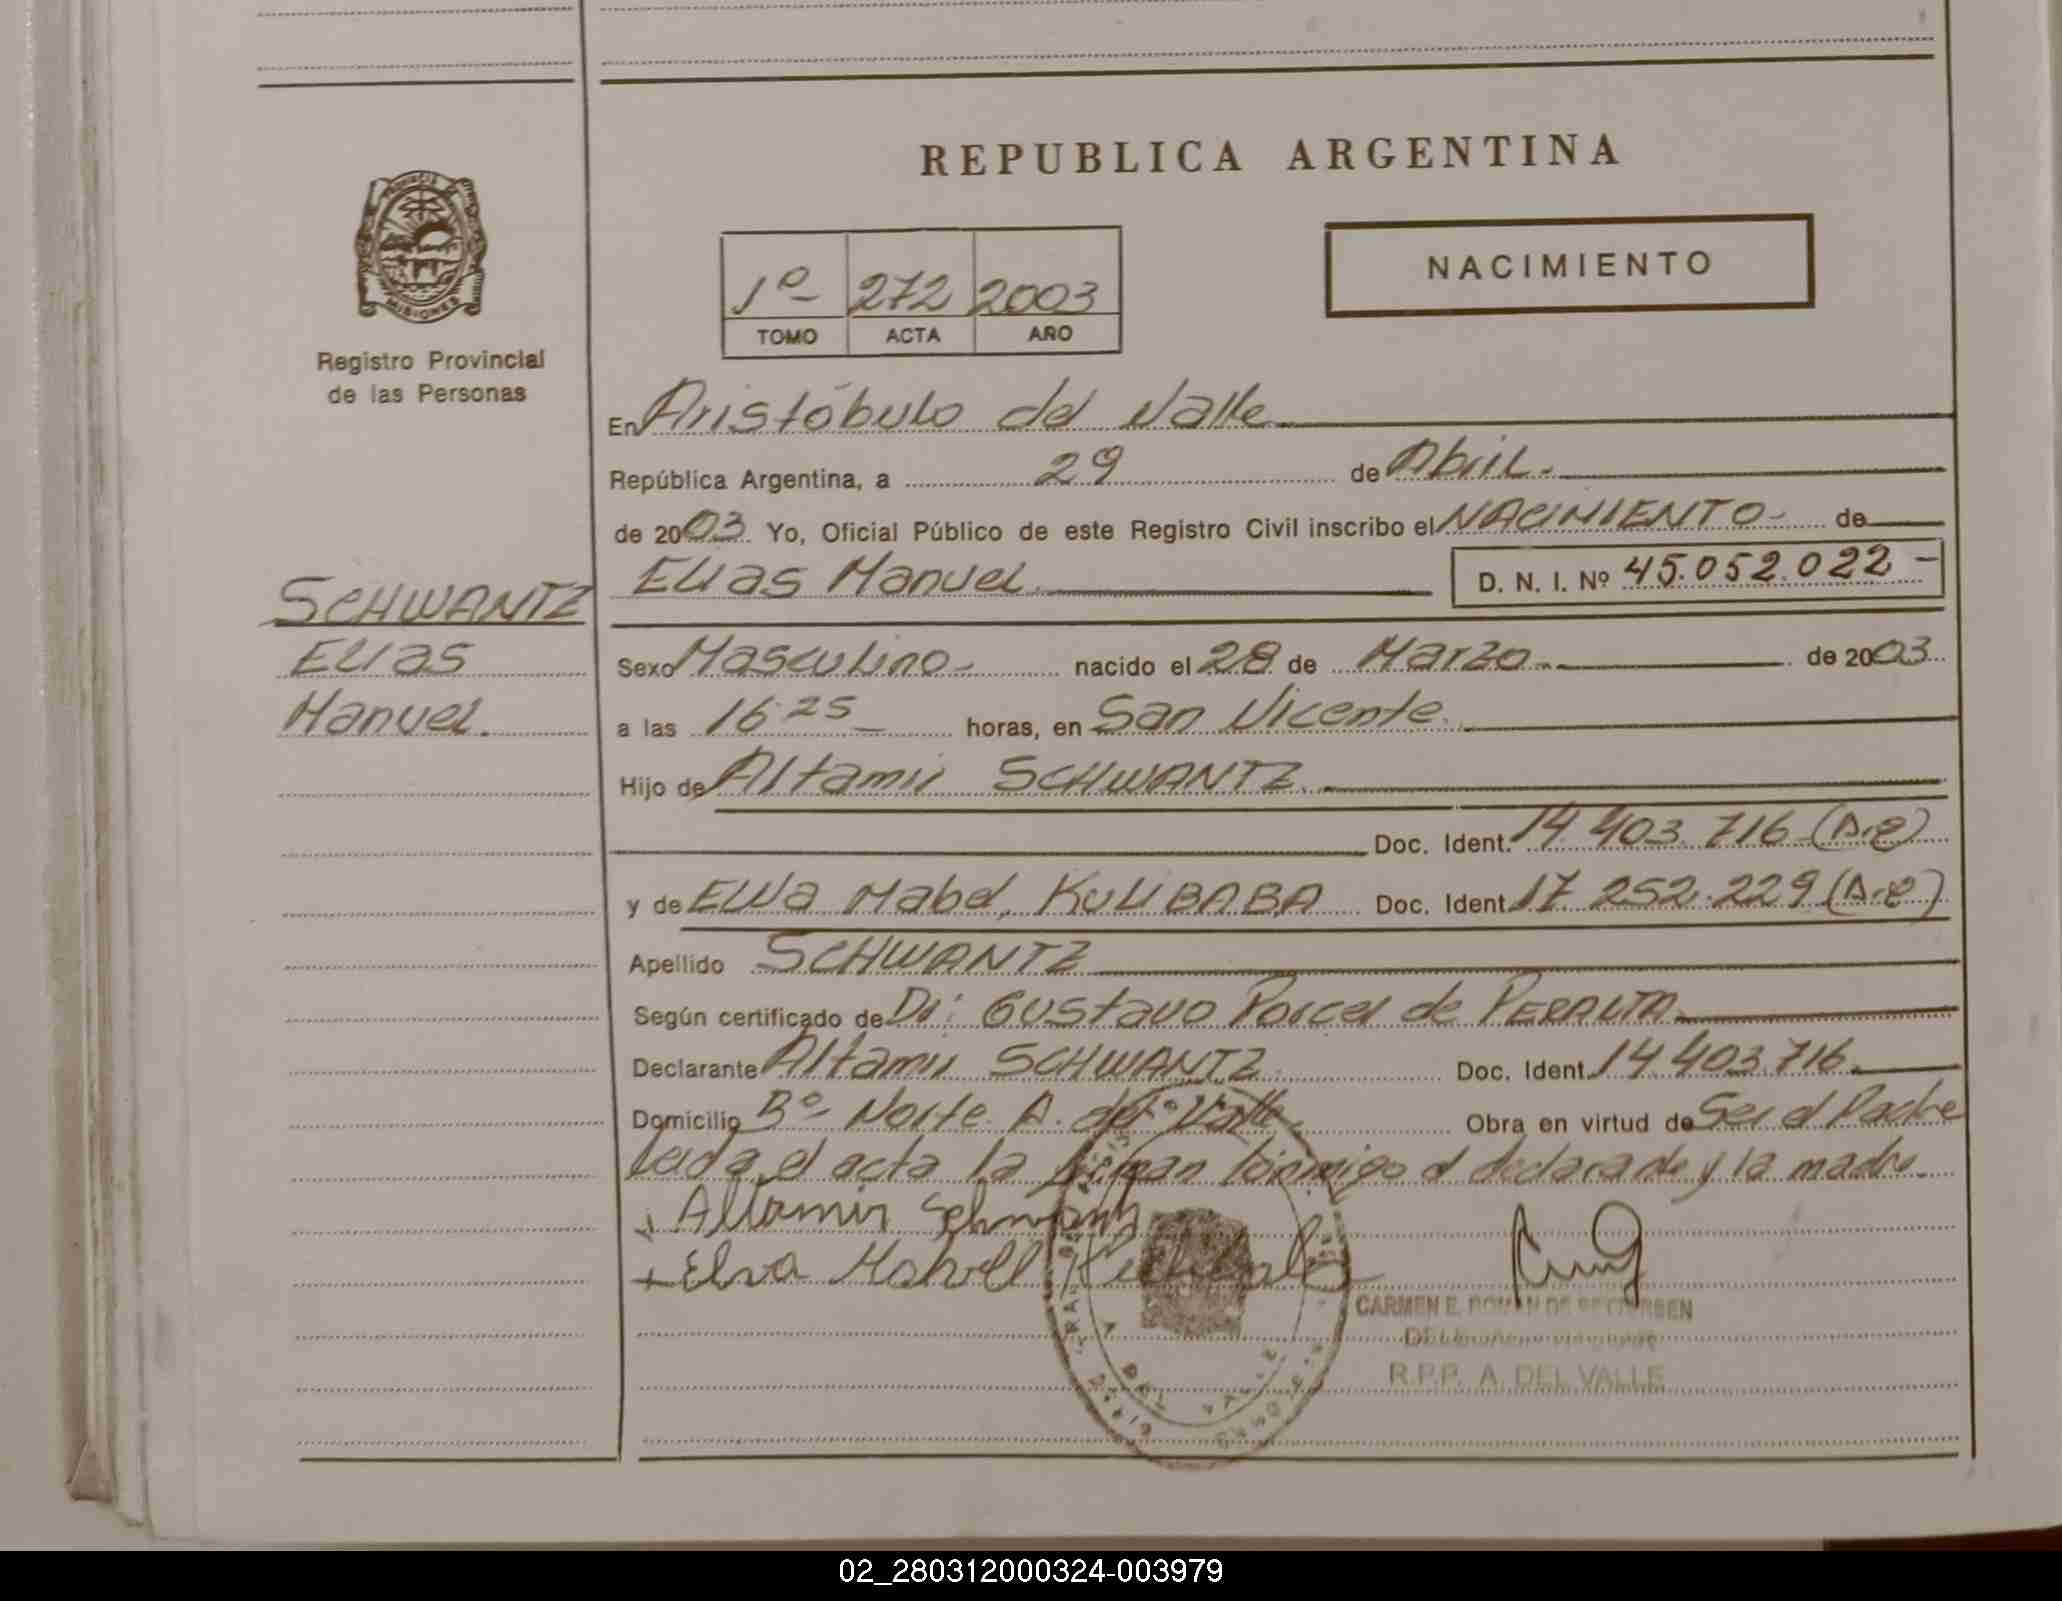 REPUBLICA ARGENTINA
PROVINCIA DE
MISIONES
Registro Provincial
de las Personas
1º 272 2003
TOMO ACTA AÑO
NACIMIENTO
En Aristóbulo del Valle
República Argentina, a 29 de Abril.
de 2003 Yo, Oficial Público de este Registro Civil inscribo el NACIMIENTO de
Elias Manuel. D. N. I. Nº 45.052.022 -
SCHWANTZ
Elias
Manuel.
Sexo Masculino - nacido el 28 de Marzo de 2003
a las 16 25 horas, en San Vicente
Hijo de Altamir SCHWANTZ.
Doc. Ident. 14.403.716 (A.e)
y de Elva Mabel, KULIBABA Doc. Ident. 17.252.229 (A.e)
Apellido SCHWANTZ
Según certificado de Dr: Gustavo Porcel de PERALTA
Declarante Altamir SCHWANTZ Doc. Ident. 14.403.716.
Domicilio Bº Norte. A. del Valle. Obra en virtud de Ser el Padre
leida el acta la firman conmigo el declarante y la madre.
Altamir Schwantz
Elva Mabell Kulibaba
CARMEN E. ROMAN DE
R.P.P. A. DEL VALLE
DEL VALLE
02_280312000324-003979